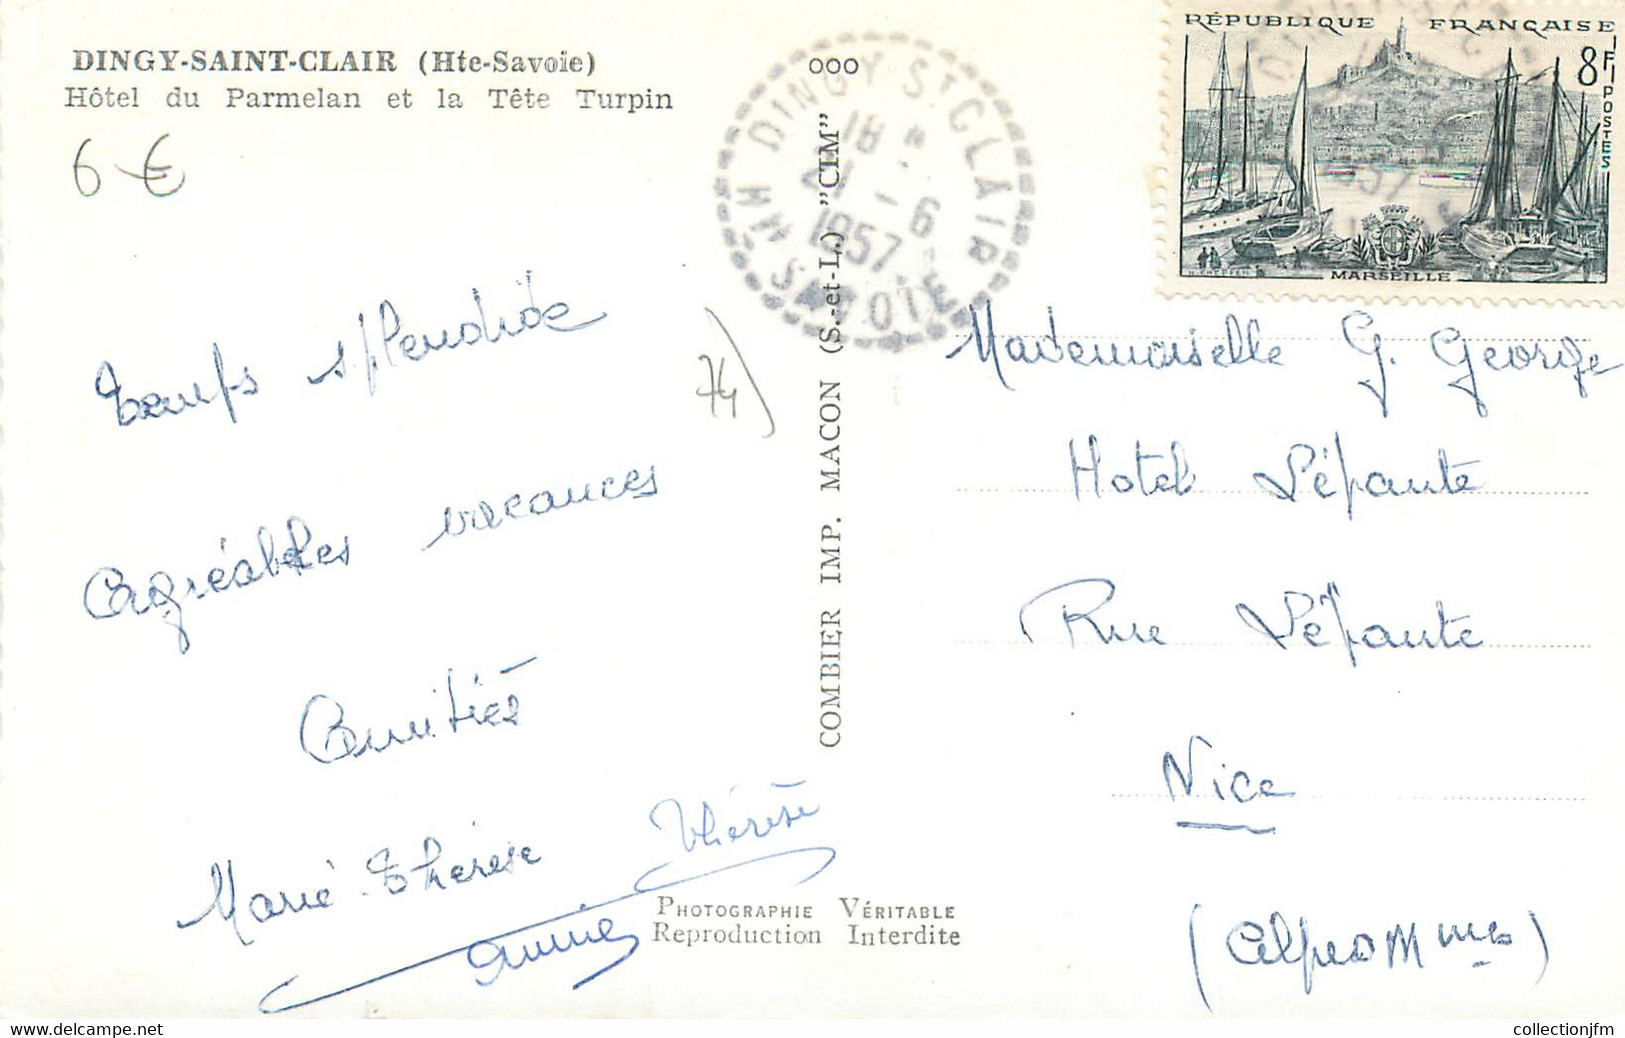 DINGY-SAINT-CLAIR (Hte-Savoie)
Hôtel du Parmelan et la Tête Turpin
6 €
temps splendide
Agréables vacances
Amitiés
Marie-Thérèse
Thérèse
Annie
74)
PHOTOGRAPHIE VÉRITABLE
Reproduction Interdite
COMBIER IMP. MACON (S.-et-L.) "CIM"
DINGY ST CLAIR
18 H
21 - 6
1957
HTE SAVOIE
RÉPUBLIQUE FRANÇAISE
8F
POSTES
MARSEILLE
Mademoiselle G. George
Hotel Lépante
Rue Lépante
Nice
(Alpes Mmes)
collectionjfm